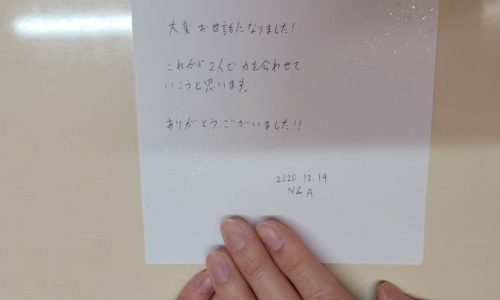 大変お世話になりました!
これから2人で力を合わせて
いこうと思います。
ありがとうございました!!
2020.12.19
N&A